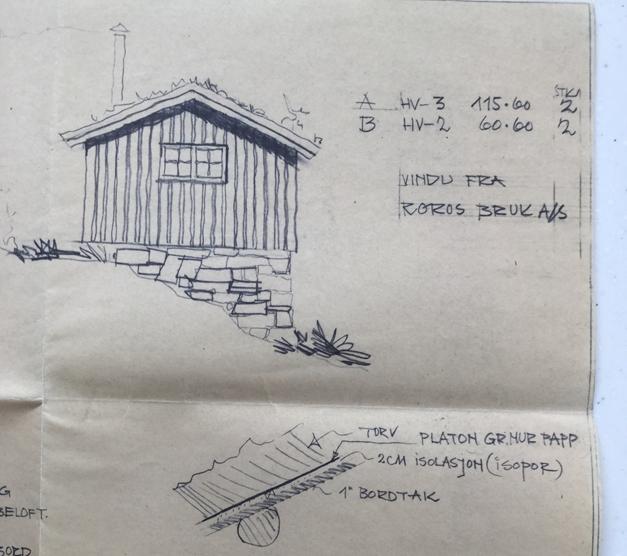 STK.
A HV-3 115·60 2
B HV-2 60·60 2
VINDU FRA
RØROS BRUK A/S
TORV PLATON GR.MUR PAPP
2CM ISOLASJON (ISOPOR)
1" BORDTAK
G
BELOFT.
BORD